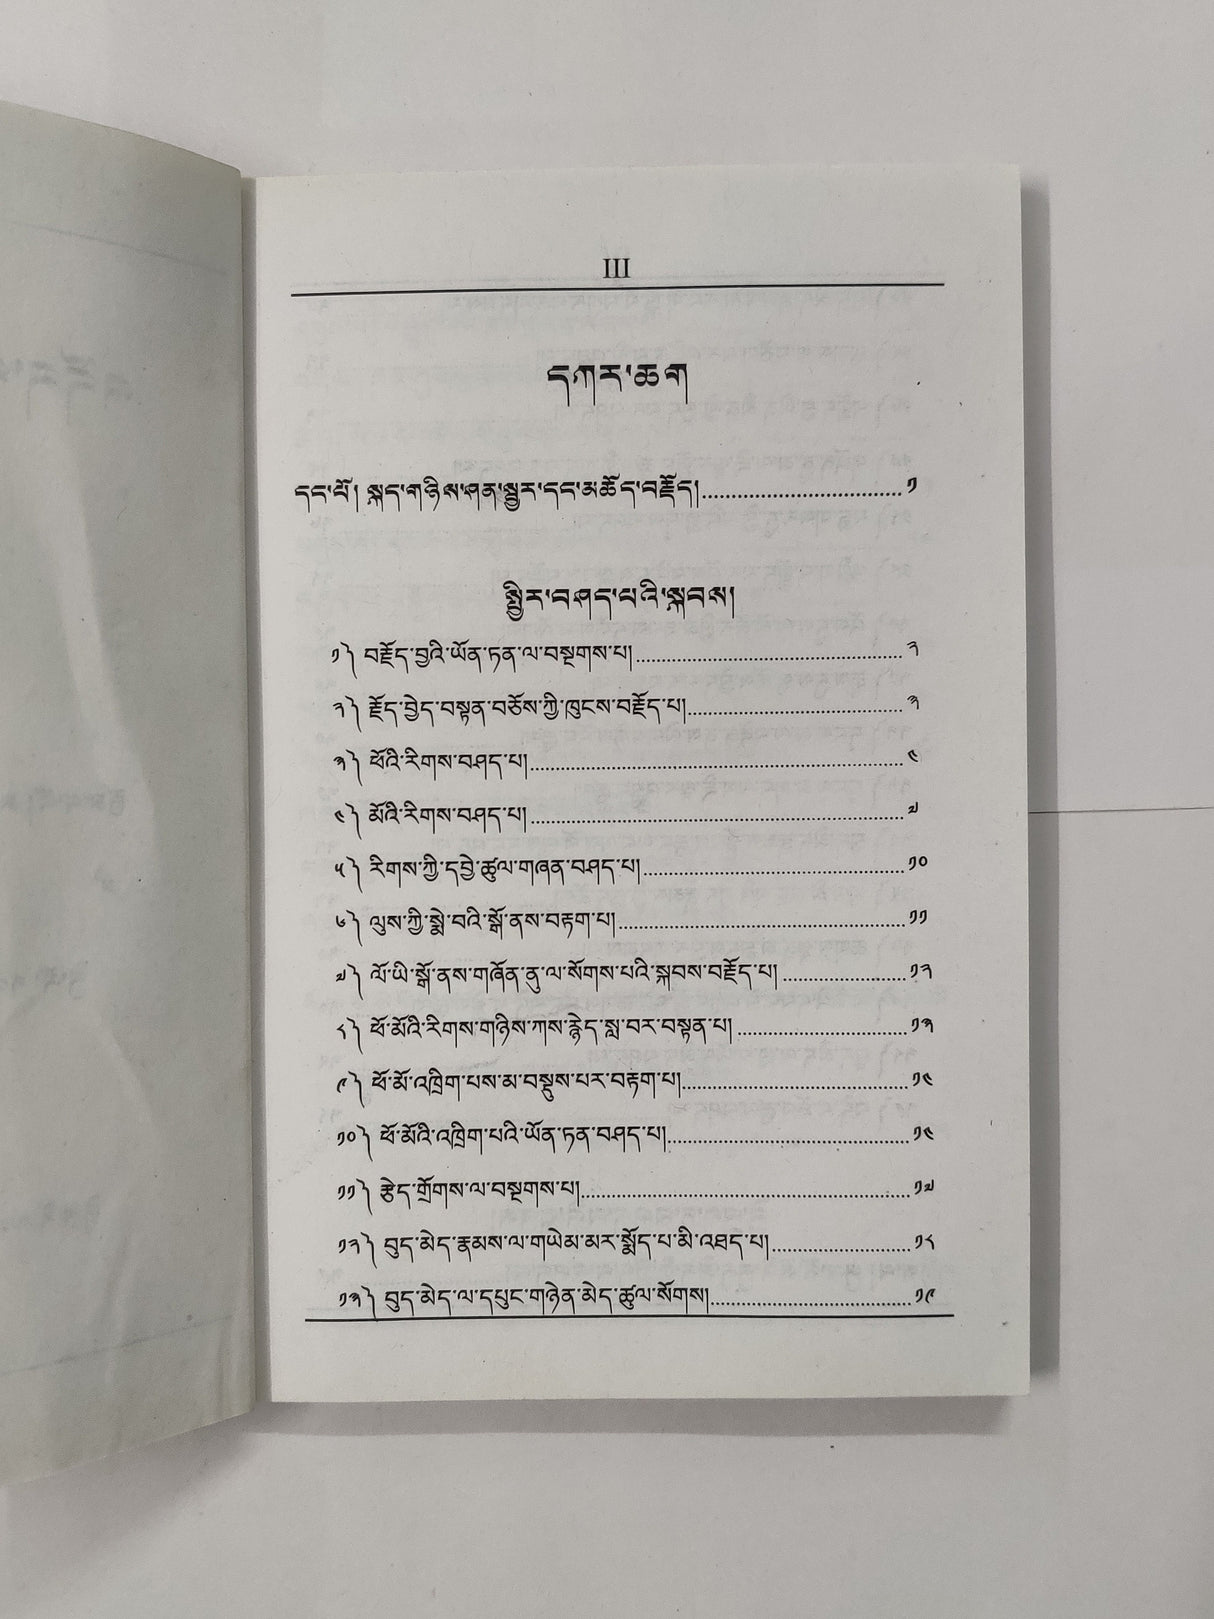 III
དཀར་ཆག
དང་པོ། སྐད་གཉིས་ཤན་སྦྱར་དང་མཆོད་བརྗོད། ༡
སྤྱིར་བཤད་པའི་སྐབས།
༡༽ བརྗོད་བྱའི་ཡོན་ཏན་ལ་བསྔགས་པ། ༢
༢༽ རྗོད་བྱེད་བསྟན་བཅོས་ཀྱི་ཁུངས་བརྗོད་པ། ༣
༣༽ ཕོའི་རིགས་བཤད་པ། ༤
༤༽ མོའི་རིགས་བཤད་པ། ༧
༥༽ རིགས་ཀྱི་དབྱེ་ཚུལ་གཞན་བཤད་པ། ༡༠
༦༽ ལུས་ཀྱི་སྨེ་བའི་སྒོ་ནས་བརྟག་པ། ༡༡
༧༽ ལོ་ཡི་སྒོ་ནས་གཞོན་ནུ་ལ་སོགས་པའི་སྐབས་བརྗོད་པ། ༡༢
༨༽ ཕོ་མོའི་རིགས་གཉིས་ཀས་རྙེད་སླ་བར་བསྟན་པ། ༡༣
༩༽ ཕོ་མོ་འཁྲིག་པས་མ་བསྡུས་པར་བརྟག་པ། ༡༤
༡༠༽ ཕོ་མོའི་འཁྲིག་པའི་ཡོན་ཏན་བཤད་པ། ༡༤
༡༡༽ རྩེད་གྲོགས་ལ་བསྔགས་པ། ༡༧
༡༢༽ བུད་མེད་རྣམས་ལ་གཡེམ་མར་སྨོད་པ་མི་འཐད་པ། ༡༨
༡༣༽ བུད་མེད་ལ་དཔུང་གཉེན་མེད་ཚུལ་སོགས། ༡༩